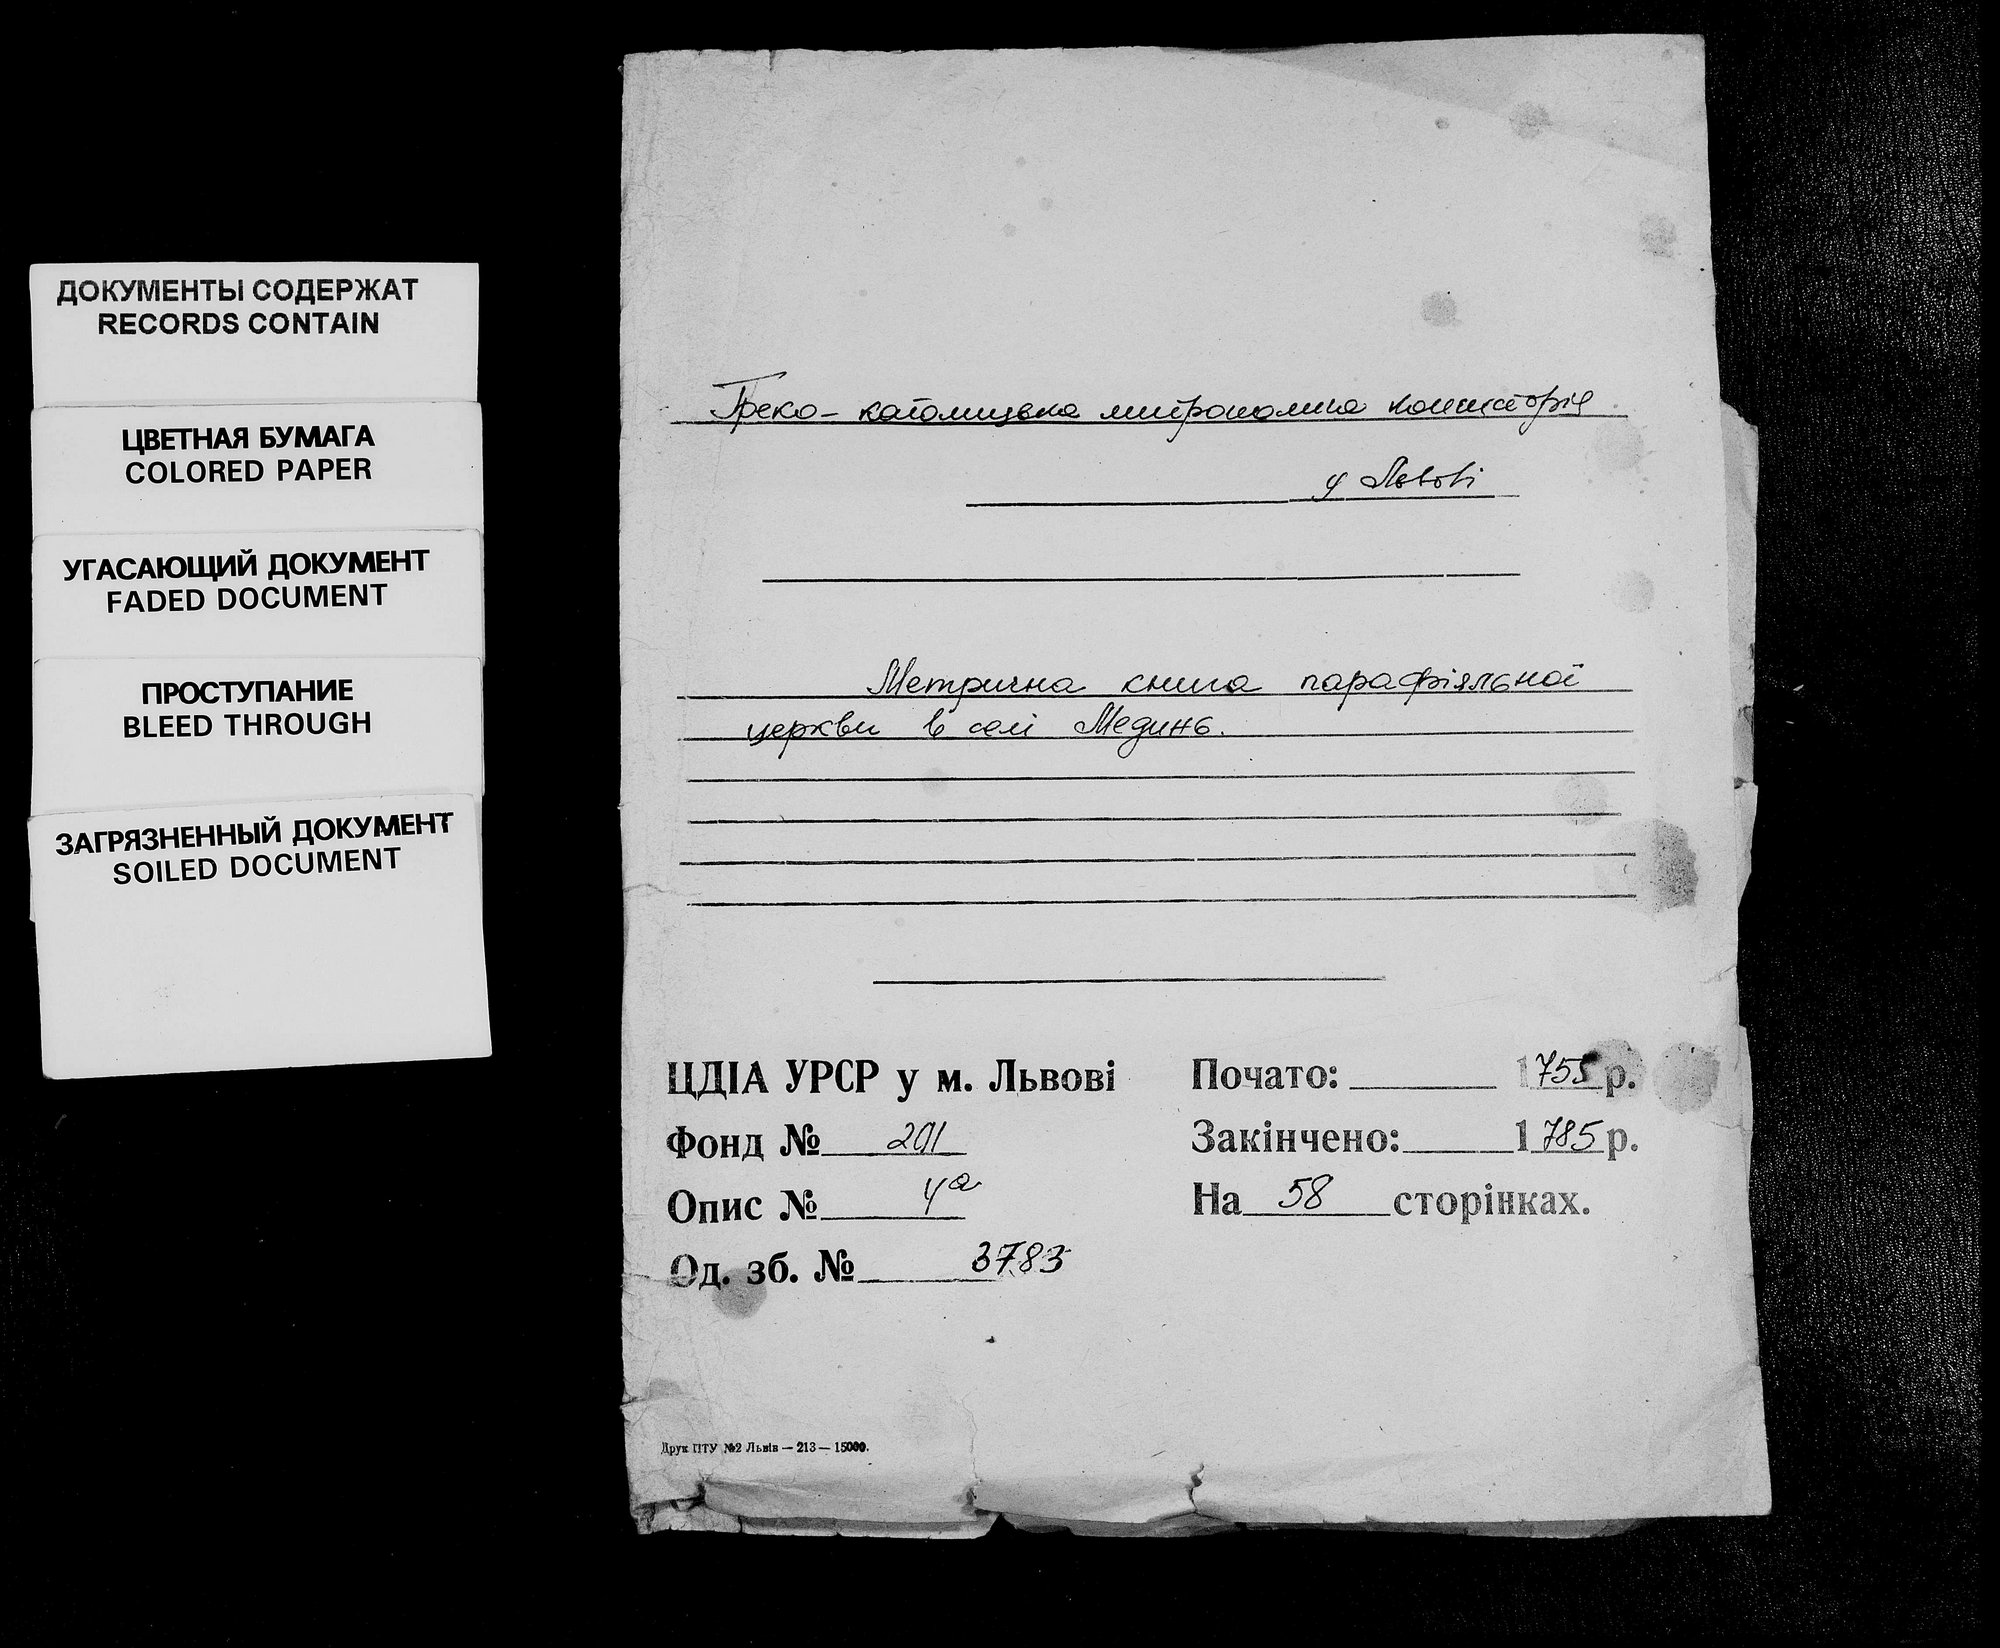 ДОКУМЕНТЫ СОДЕРЖАТ
RECORDS CONTAIN
ЦВЕТНАЯ БУМАГА
COLORED PAPER
УГАСАЮЩИЙ ДОКУМЕНТ
FADED DOCUMENT
ПРОСТУПАНИЕ
BLEED THROUGH
ЗАГРЯЗНЕННЫЙ ДОКУМЕНТ
SOILED DOCUMENT
Греко-католицька митрополича консисторія
у Львові
Метрична книга парафіяльної
церкви в селі Мединь.
ЦДІА УРСР у м. Львові
Фонд № 201
Опис № 4а
Од. зб. № 3783
Почато: 1755 р.
Закінчено: 1785 р.
На 58 сторінках.
Друк ПТУ №2 Львів — 213 — 15000.